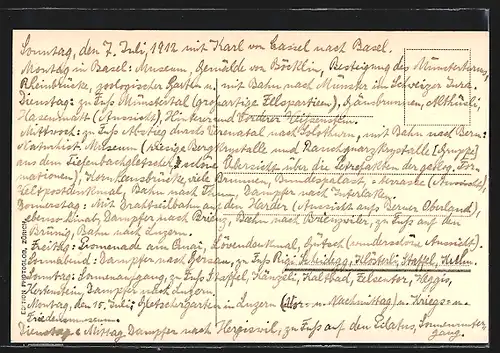 Sonntag, den 7. Juli, 1912 mit Karl von Cassel nach Basel.
Montag in Basel: Museum, Gemälde von Böcklin, Besteigung des Münsterturms,
Rheinbrücke, zoologischer Garten u. mit Bahn nach Münster im Schweizer Jura.
Dienstag: zu Fuss Münstertal (grossartige Felspartieen), Gänsbrunnen, Althüsli,
Hasenmatt (Aussicht), Hinterer und Vorderer Weissenstein.
Mittwoch: zu Fuss Abstieg durch Verenatal nach Solothurn, mit Bahn nach Bern:
Naturhist. Museum (riesige Bergkrystalle und Rauchquarzkrystalle [Gruppe]
aus dem Tiefenbachgletscher, schöne Übersicht über die Petrefakten der geolog. For-
mationen), Kornhausbrücke, viele Brunnen, Bundespalast, Terrasse (Aussicht),
Weltpostdenkmal, Bahn nach Thun, Dampfer nach Interlaken.
Donnerstag: Mit Drahtseilbahn auf den Harder (Aussicht aufs Berner Oberland),
ebenso hinab, Dampfer nach Brienz, Bahn nach Brienzwiler, zu Fuss auf den
Brünig, Bahn nach Luzern.
Freitag: Promenade am Quai, Löwendenkmal, Gütsch (wundervolle Aussicht).
Sonnabend: Dampfer nach Gersau, zu Fuss Rigi Scheidegg, Klösterli, Staffel, Kulm.
Sonntag: Sonnenaufgang, zu Fuss Staffel, Känzeli, Kaltbad, Felsentor, Weggis,
Hertenstein, Dampfer nach Luzern.
Montag, den 15. Juli; Gletschergarten in Luzern (Vor- u. Nachmittag) u. Kriegs- u.
Friedensmuseum.
Dienstag: Mittag Dampfer nach Hergiswil, zu Fuss auf den Pilatus, Sonnenunter-
gang.
EDITION PHOTOGLOB, ZÜRICH